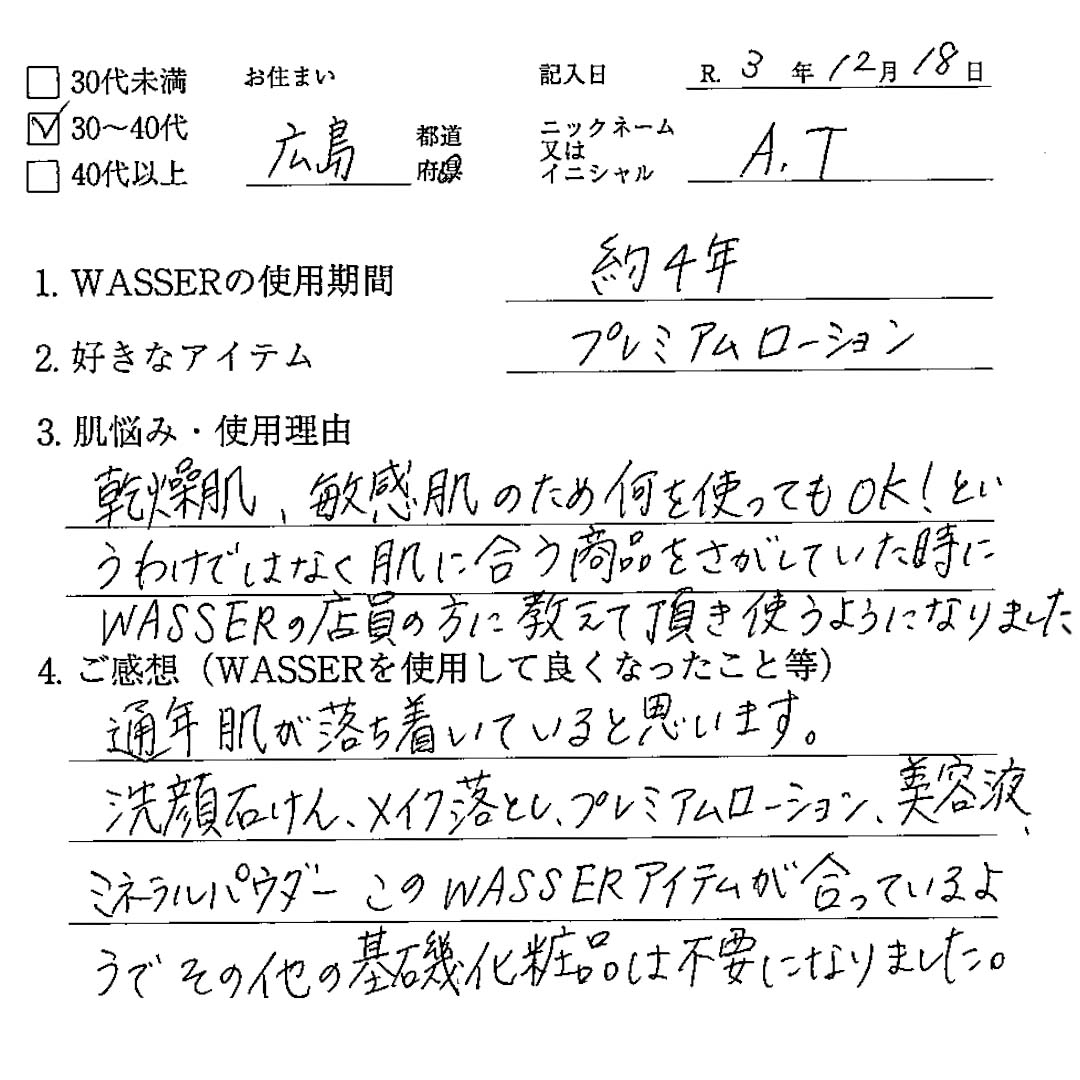 30代未満 お住まい 記入日 R. 3 年 12月 18日
30〜40代 広島 都道府県 ニックネーム又はイニシャル A.T
40代以上
1. WASSERの使用期間 約4年
2. 好きなアイテム プレミアムローション
3. 肌悩み・使用理由
乾燥肌、敏感肌のため何を使ってもOK!とい
うわけではなく肌に合う商品をさがしていた時に
WASSERの店員の方に教えて頂き使うようになりました
4. ご感想（WASSERを使用して良くなったこと等）
通年肌が落ち着いていると思います。
洗顔石けん、メイク落とし、プレミアムローション、美容液、
ミネラルパウダー このWASSERアイテムが合っているよ
うでその他の基礎化粧品は不要になりました。